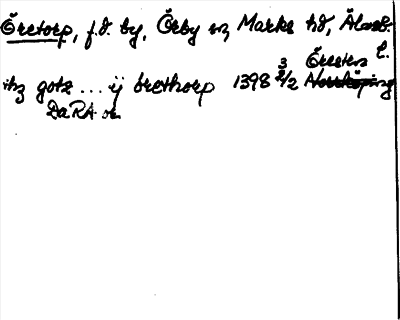 Öretorp, f.d. by, Örby sn, Marks hd, Älvsb. l.
Öresten
thz gotz ... ij örethorp 1398 3/2 Norrköping
DaRA or.